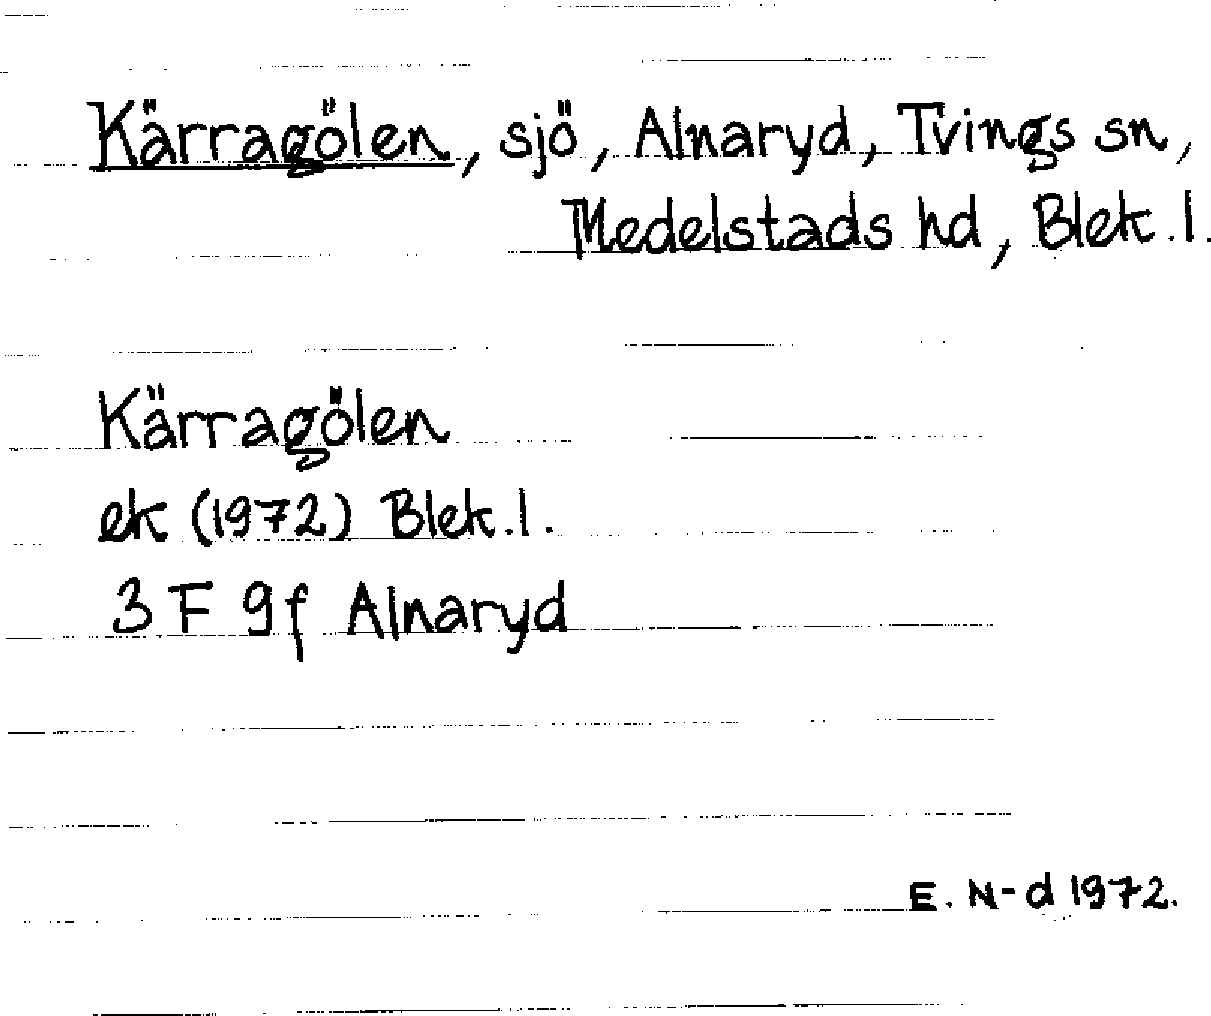 Kärragölen, sjö, Alnaryd, Tvings sn,
Medelstads hd, Blek.l.
Kärragölen
ek (1972) Blek.l.
3 F 9f Alnaryd
E. N-d 1972.